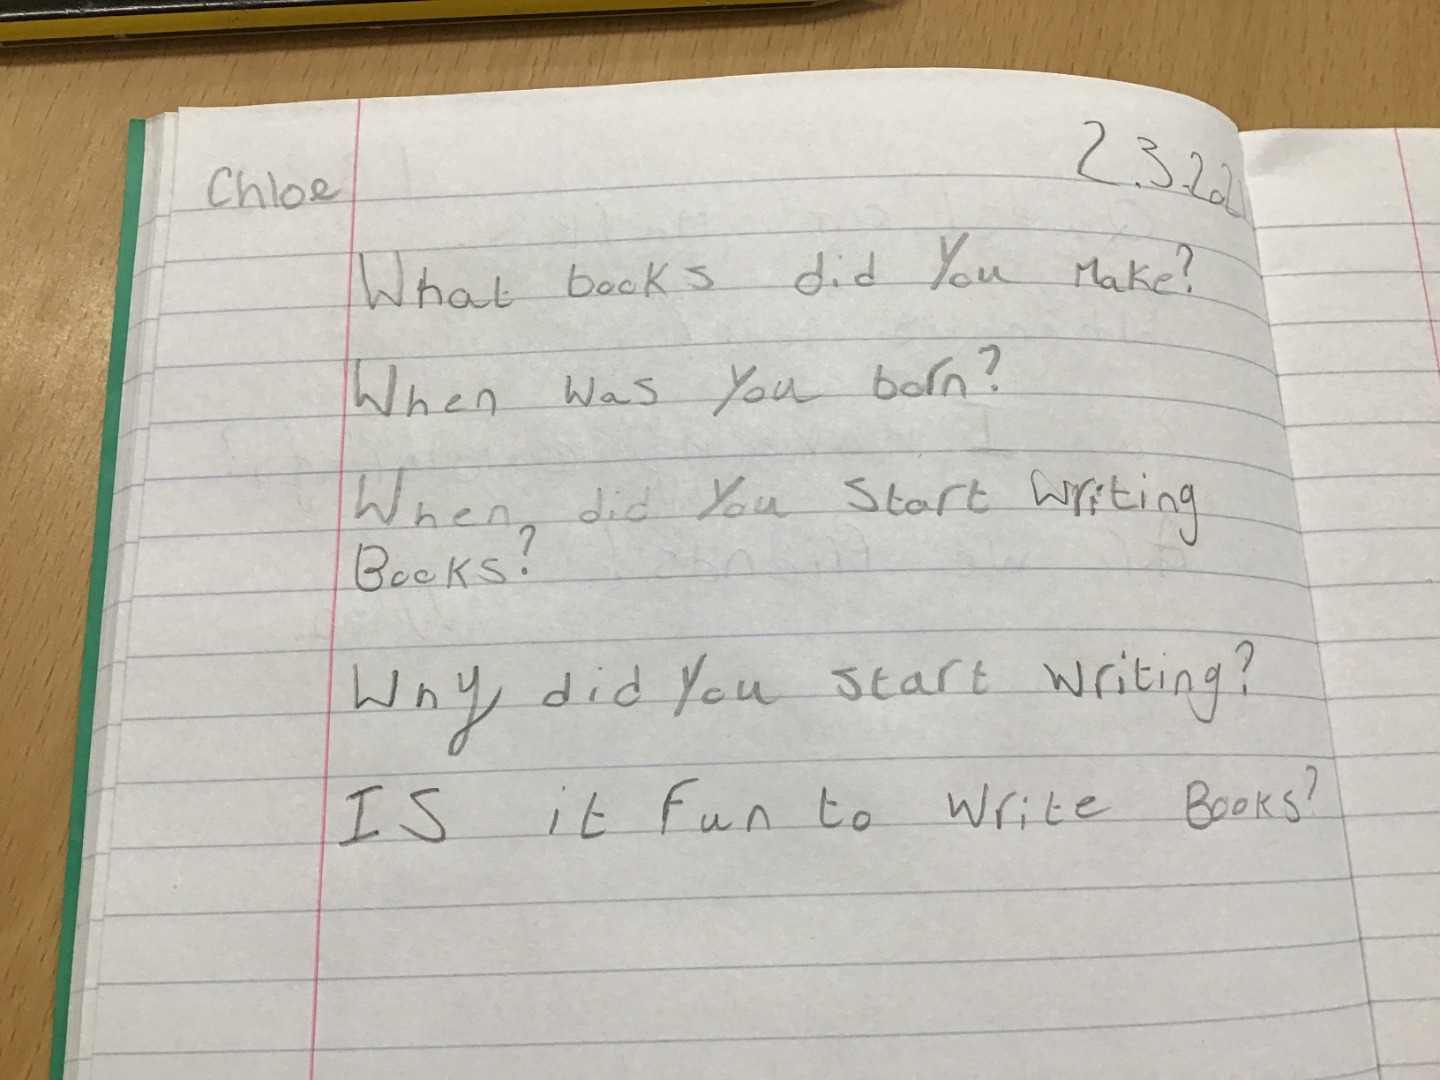 Chloe
2.3.22
What books did You Make?
When was you born?
When did You Start Writing
Books?
Why did You Start Writing?
IS it Fun to Write Books?